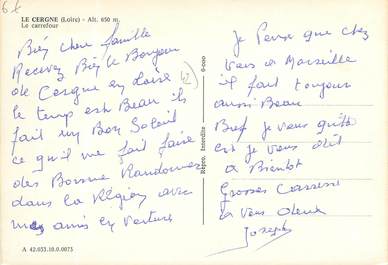 6€
LE CERGNE (Loire) - Alt. 650 m.
Le carrefour
Bien chere famille
Recevez Bien le Bonjour
de Cergne en Loire (42)
le temps est Beau il
fait un Bon Soleil
ce qu'il me fait faire
des Bonne Randonnees
dans la Région avec
mes amis en voiture
A 42.033.10.0.0075
Repro. Interdite
Je Pense que chez
vous a Marseille
il fait toujour
aussi Beau
Bref je vous quitte
et je vous dit
a Bientot
Grosses Caresse
a vous deux
Joseph